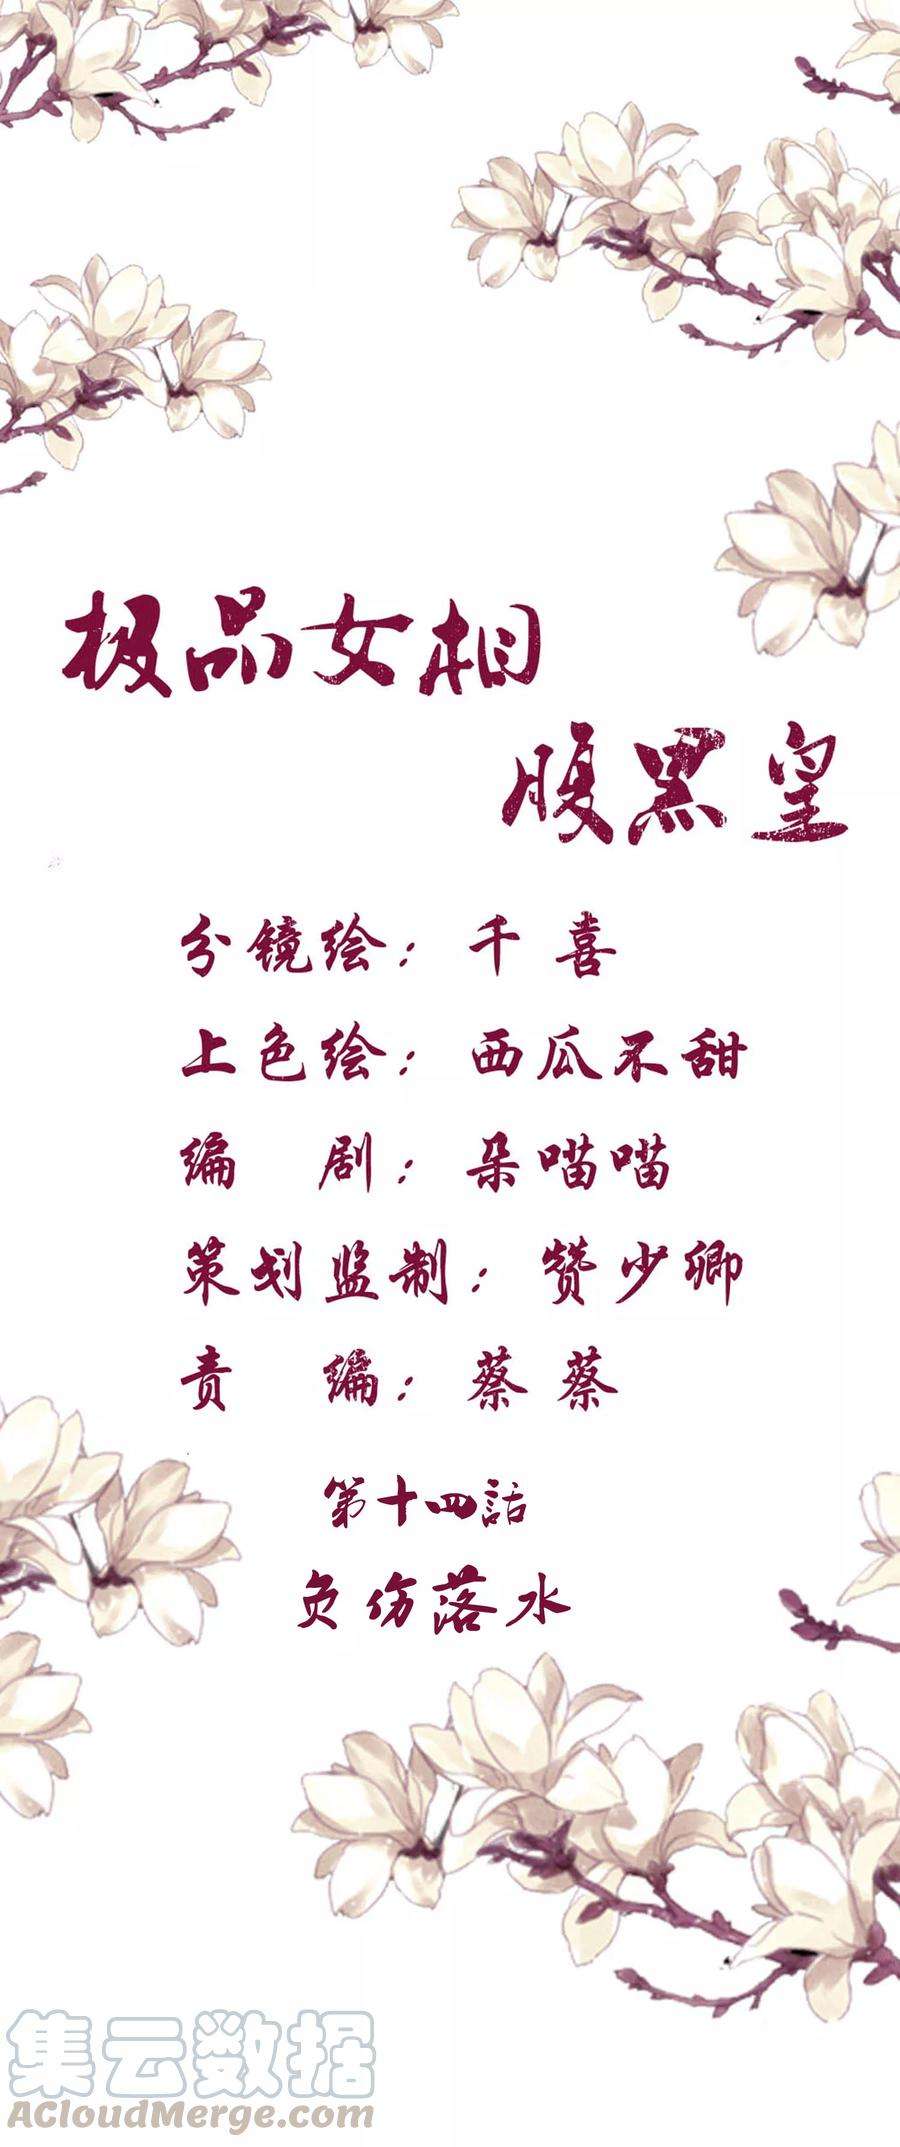 极品女相
腹黑皇
分镜绘：千喜
上色绘：西瓜不甜
编 剧：朵喵喵
策划监制：赞少卿
责 编：蔡蔡
第十四話
负伤落水
集云数据
ACloudMerge.com